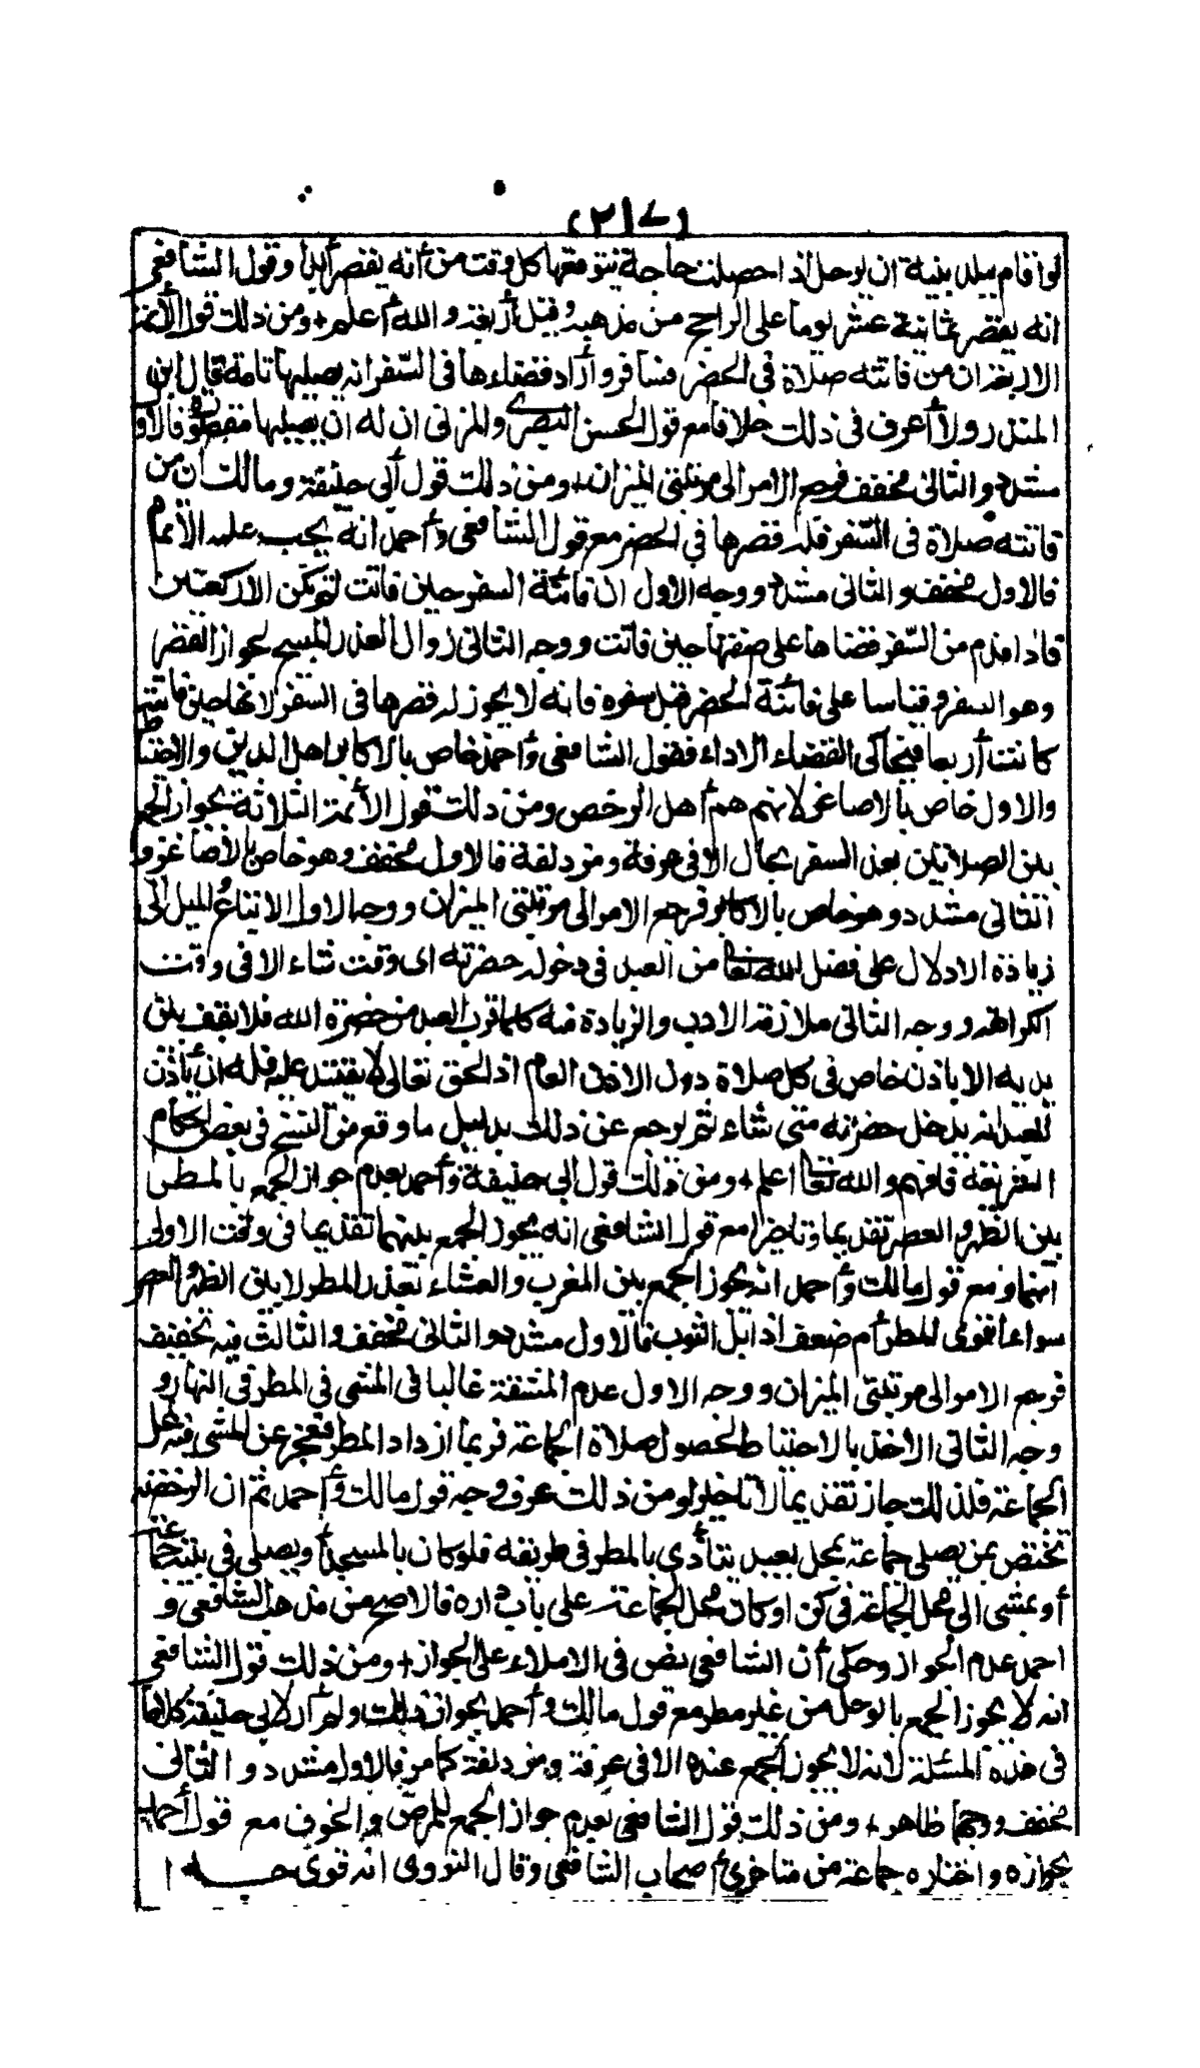 (٢١٧)
لو أقام ببلد بنية ان يرحل اذا حصلت حاجة يتوقعها كل وقت من أنه يقصر أبدا وقول الشافعي
انه يقصر ثمانية عشر يوما على الراجح من مذهبه وقيل أربعة والله أعلم + ومن ذلك قول الأئمة
الاربعة ان من فاتته صلاة في الحضر فسافر وأراد قضاءها في السفر انه يصليها تامة قال ابن
المنذر ولا أعرف في ذلك خلافا مع قول الحسن البصري والمزني ان له ان يصليها مقصورة فالاول
مشدد والثاني مخفف فرجع الامر الى مرتبتي الميزان + ومن ذلك قول أبي حنيفة ومالك ان من
فاتته صلاة في السفر فله قصرها في الحضر مع قول الشافعي وأحمد انه يجب عليه الأتمام
فالاول مخفف والثاني مشدد ووجه الاول ان فائتة السفر حين فاتت لم تكن الا ركعتين
فاذا قدم من السفر قضاها على صفتها حين فاتت ووجه الثاني زوال العذر المبيح لجواز القصر
وهو السفر وقياسا على فائتة الحضر قبل سفره فانه لا يجوز له قصرها في السفر لانها حين فاتته
كانت أربعا فيحاكى القضاء الاداء فقول الشافعي وأحمد خاص بالاكابر اهل الدين والاحتياط
والاول خاص بالاصاغر لانهم هم أهل الرخص ومن ذلك قول الأئمة الثلاثة بجواز الجمع
بين الصلاتين بعذر السفر بحال الا في عرفة ومزدلفة فالاول مخفف وهو خاص بالاصاغر و
الثاني مشدد وهو خاص بالاكابر فرجع الامر الى مرتبتي الميزان ووجه الاول الاتباع للميل الى
زيادة الادلال على فضل الله تعا من العبد في دخوله حضرته اى وقت شاء الا في وقت
الكراهة ووجه الثاني ملازمة الادب والزيادة فيه كلما قرب العبد من حضرة الله فلا يقف بين
يديه الا باذن خاص في كل صلاة دون الاذن العام اذ الحق تعالى لا يقتيد عليه فله ان يأذن
للعبد انه يدخل حضرته متى شاء ثم يرجع عن ذلك بدليل ما وقع من النسخ في بعض احكام
الشريعة فافهم والله تعا اعلم + ومن ذلك قول ابى حنيفة وأحمد بعدم جواز الجمع بالمطر
بين الظهر والعصر تقديما وتاخيرا مع قول الشافعي انه يجوز الجمع بينهما تقديما في وقت الاولى
منهما ومع قول مالك وأحمد انه يجوز الجمع بين المغرب والعشاء بعذر المطر لا بين الظهر والعصر
سواء أقوى المطر أم ضعف اذا بل الثوب فالاول مشدد والثاني مخفف والثالث فيه تخفيف
فرجع الامر الى مرتبتي الميزان ووجه الاول عدم المشقة غالبا في المشى في المطر في النهار و
وجه الثاني الاخذ بالاحتياط لحصول صلاة الجماعة فربما ازداد المطر فعجز عن المشى فيه لمحل
الجماعة فلذلك جاز تقديما لا تاخيرا ومن ذلك عرف وجه قول مالك وأحمد ثم ان الرخصة
تختص بمن يصلى جماعة بمحل بعيد يتأذى بالمطر في طريقه فلو كان بالمسجد أو يصلى في بيته جماعة
أو يمشى الى محل الجماعة في كن او كان محل الجماعة على باب داره فالاصح من مذهب الشافعي و
احمد عدم الجواز وحكى أن الشافعي نص في الاملاء على الجواز + ومن ذلك قول الشافعي
انه لا يجوز الجمع بالوحل من غير مطر مع قول مالك وأحمد بجواز ذلك ولم أر لابي حنيفة كلاما
في هذه المسئلة لانه لا يجوز الجمع عنده الا في عرفة ومزدلفة كما مر فالاول مشدد والثاني
مخفف ووجهما ظاهر + ومن ذلك قول الشافعي بعدم جواز الجمع للمرض والخوف مع قول أحمد
بجوازه واختاره جماعة من متاخرى أصحاب الشافعي وقال النووى انه قوى جدا